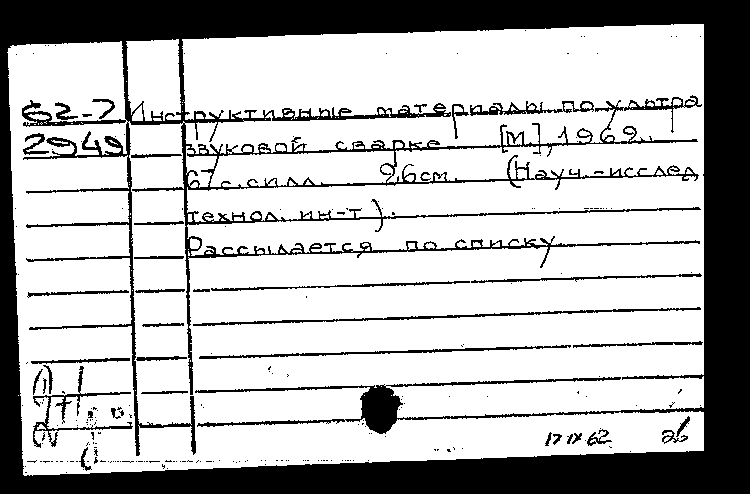 62-7 Инструктивные материалы по ультра
2949 звуковой сварке [М.], 1962.
67 с. с илл. 26 см. (Науч.-исслед.
технол. ин-т).
Рассылается по списку
17 IX 62 26